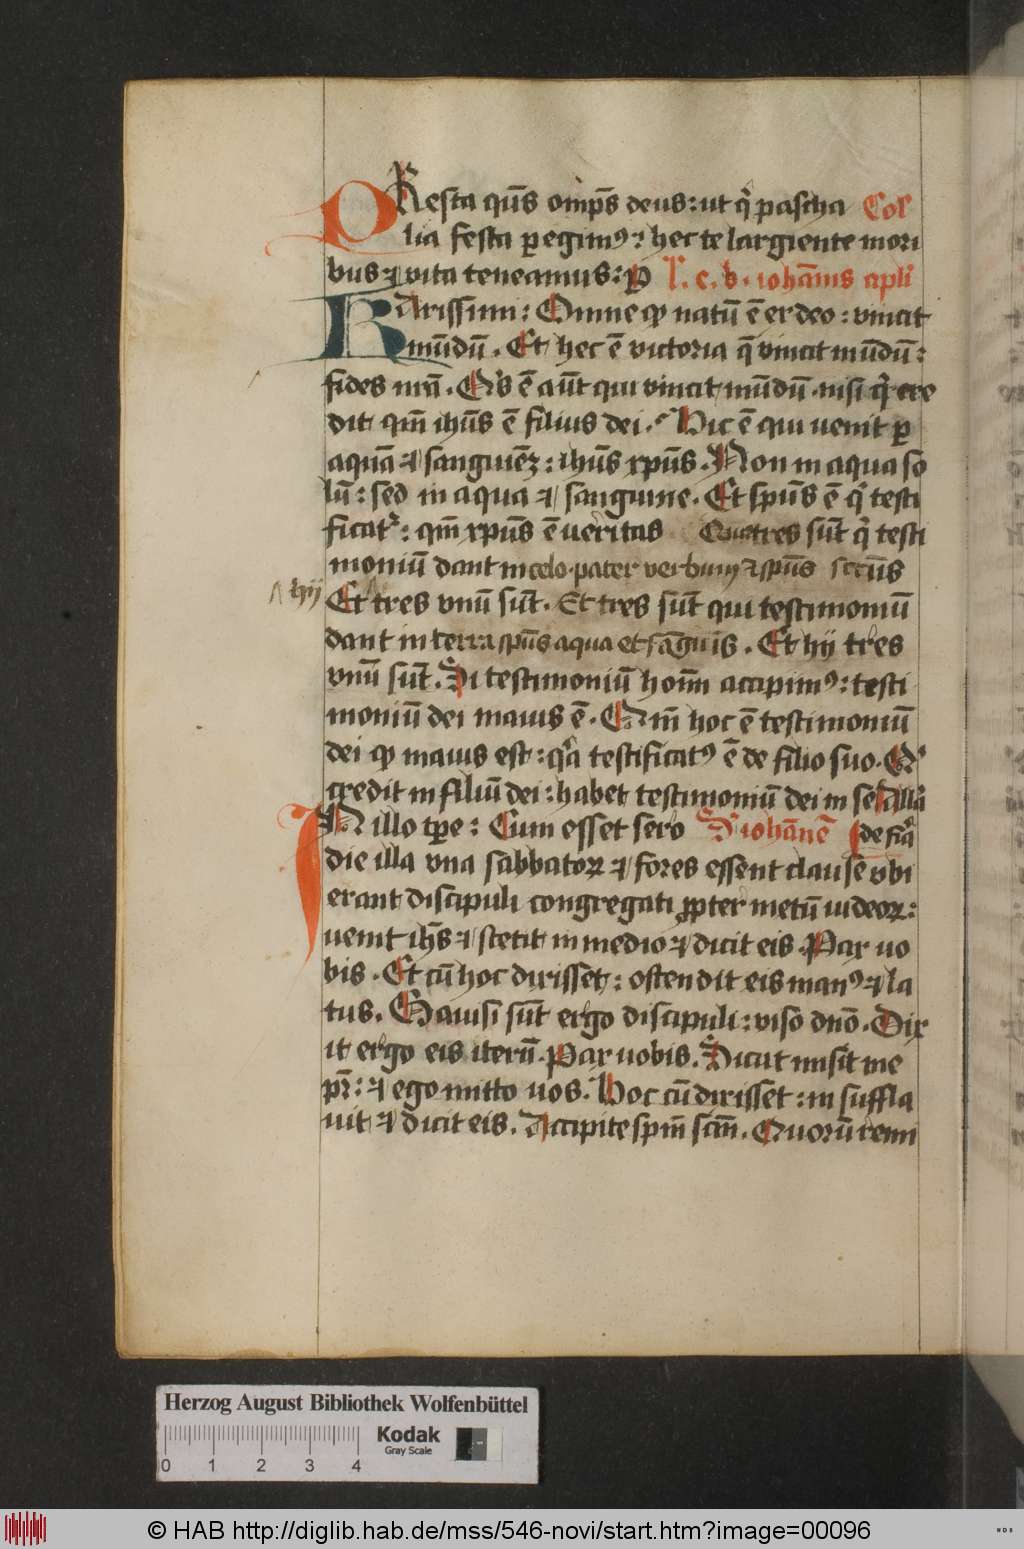 PResta qūs om̄ps deus: ut q̄ pascha Col
lia festa peregimꝰ: hec te largiente mori
bus ⁊ vita teneamus: P L. e. b. iohānis apl'i
KArissimi: Omne qd natū ē ex deo: vincit
mūdū. Et hec ē victoria q̄ vincit mūdū:
fides nrā. Qͥs ē aūt qui vincit mūdū nisi qͥ cre
dit qm̄ ihūs ē filius dei. Hic ē qui uenit p
aquā ⁊ sanguinēꝫ: ihūs xpūs. Non in aqua so
lū: sed in aqua ⁊ sanguine. Et spūs ē qͥ testi
ficatͬ: qm̄ xpūs ē ueritas tres sūt qͥ testi
moniū dant in celo. pater verbum ⁊ spūs scūs
hij Et tres vnū sūt. Et tres sūt qui testimoniū
dant in terra spūs aqua et sāguis. Et hij tres
vnū sūt. Si testimoniū hoīm accipimꝰ: testi
moniū dei maius ē. Qm̄ hoc ē testimoniū
dei qd maius est: qͣ testificatꝰ ē de filio suo. Qͥ
credit in filiū dei: habet testimoniū dei in se Allā
IN illo tp̄e: Cum esset sero S iohānē de fīa
die illa vna sabbatoꝝ ⁊ fores essent clause vbi
erant discipuli congregati ꝓpter metū iudeoꝝ:
uenit ih̄s ⁊ stetit in medio ⁊ dicit eis. Pax uo
bis. Et cū hoc dixisset: ostendit eis manꝰ ⁊ la
tus. Gauisi sūt ergo discipuli: viso dnō. Dix
it ergo eis iterū. Pax uobis. Sicut misit me
pr̄: ⁊ ego mitto uos. Hoc cū dixisset: in suffla
uit ⁊ dicit eis. Accipite spm̄ scm̄. Quorū remi
Herzog August Bibliothek Wolfenbüttel
Kodak
Gray Scale
0 1 2 3 4
© HAB http://diglib.hab.de/mss/546-novi/start.htm?image=00096